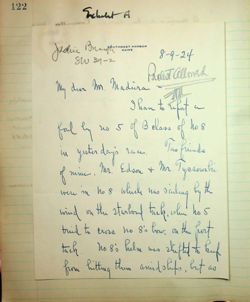 122
Exhibit A
SOUTHWEST HARBOR
MAINE
8-9-24
My dear Mr. Madeira
I have to report a
foul by no 5 of B class of No 8
in yesterdays race. Two friends
of mine. Mr. Edson & Mr
were in no 8 which was sailing by the
wind on the starboard tack, when no 5
tried to cross no 8's bow, on the port
tack. No 8's helm was shifted to keep
from hitting them amidships, but as